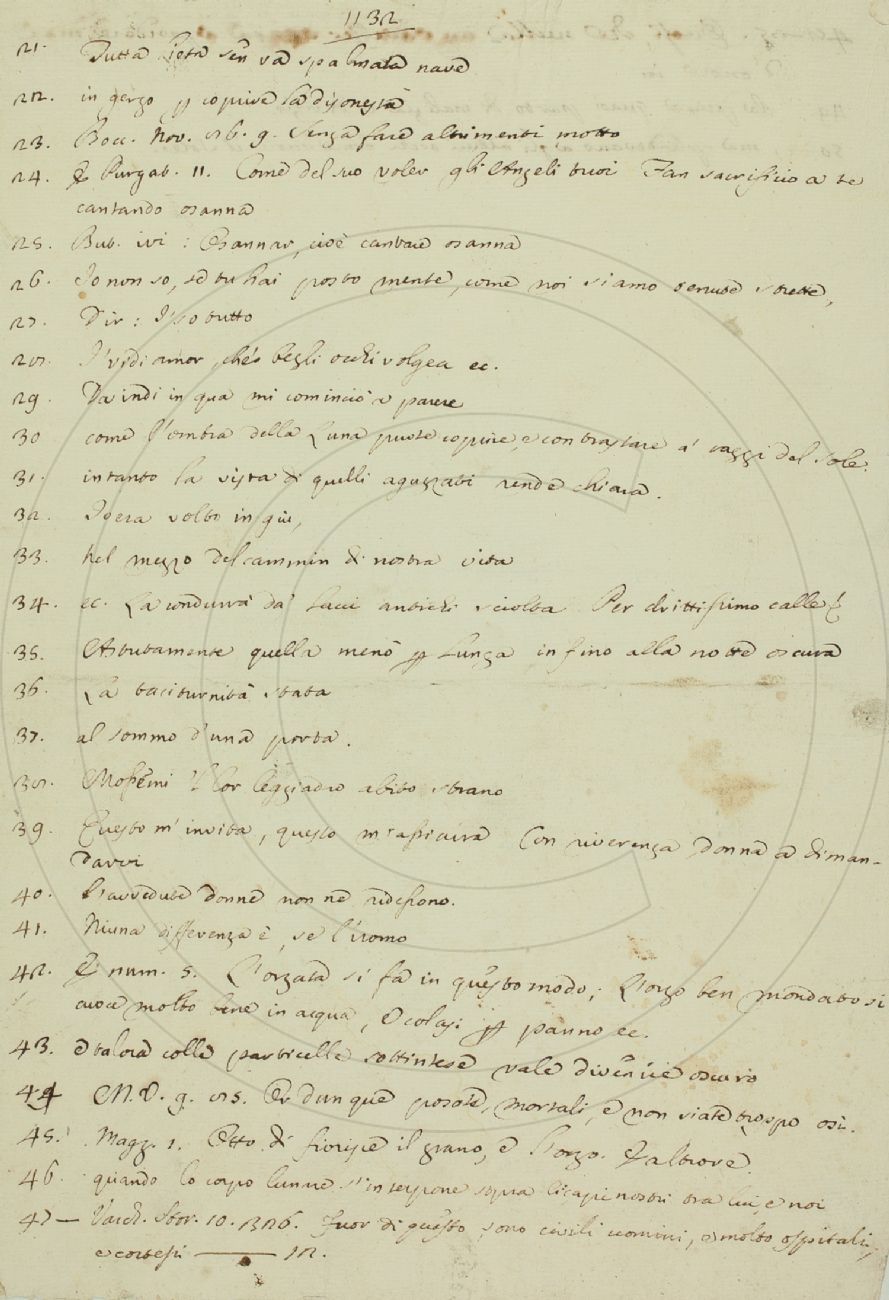 1132
21. Tutta lieta sen va spalmata nave
22. in gergo p coprire la disonestà
23. Bocc. Nov. 86. 9. Senza fare altrimenti motto
24. E Purgat. 11. Come del suo voler gli Angeli tuoi Fan sacrificio a te
cantando osanna
25. But. ivi: Osannar, cioè cantare osanna
26. Io non so, se tu hai posto mente, come noi siamo tenute strette,
27. Dir: I' so tutto
28. I' vidi amor, che's begli occhi volgea ec.
29. Da indi in qua mi cominciò a parere
30 come l'ombra della Luna puote coprire, e contrastare a' raggi del Sole.
31. intanto la vista di quelli aguzzati rende chiara.
32. Io era volto in giù,
33. Nel mezzo del cammin di nostra vita
34. ec. La condurrà da' lacci antichi sciolta Per drittissimo calle E
35. Astutamente quella menò p lunga in fino alla notte oscura
36. La taciturnità stata
37. al sommo d'una porta.
38. Mossemi 'l lor leggiadro abito strano
39. Questo m'invita, questo m'assicura Con riverenza donna a diman-
darvi
40. l'avvedute donne non ne ridessono.
41. Niuna differenza è, se l'uomo
42. E num. 5. L'orzata si fa in questo modo; L'orzo ben mondato si
cuoce molto bene in acqua, e colasi p panno ec.
43. e talora colle particelle sottintese vale divenire oscuro
44 M. V. 9. 85. Or dunque posate, mortali, e non siate troppo osi.
45. Magg. 1. Otto dì fiorisce il grano, e l'orzo. E altrove.
46. quando lo corpo lunare s'interpone sopra li capi nostri tra lui, e noi
47 — Varch. Stor. 10. 326. Fuor di questo, sono civili uomini, e molto ospitali,
e cortesi —— 12.